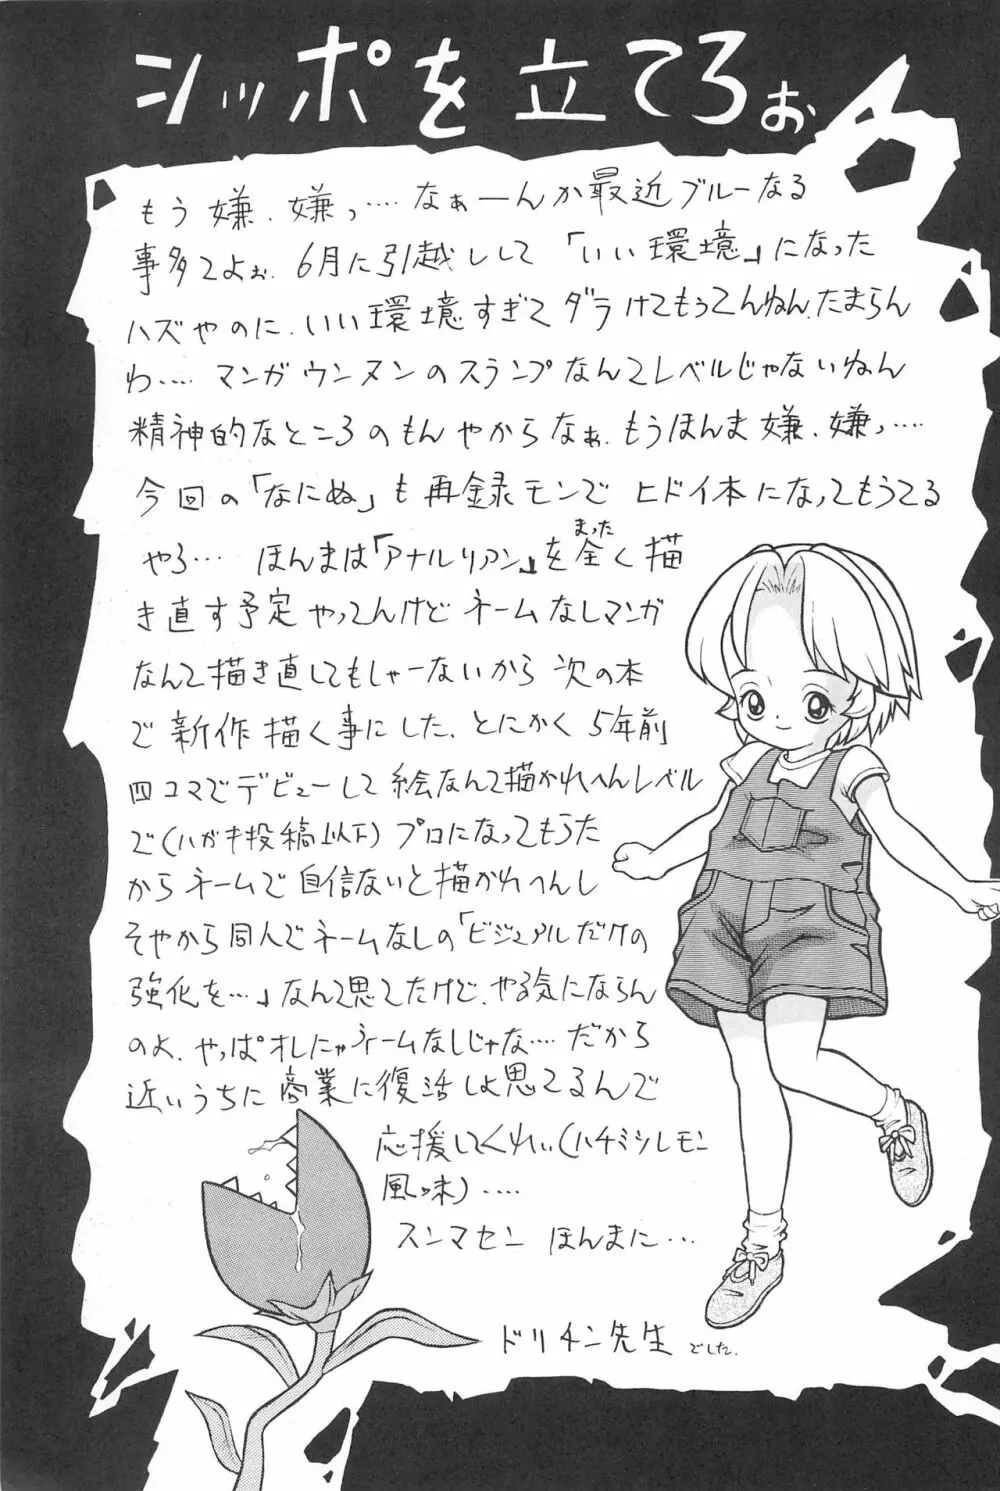 シッポを立てろぉ
もう嫌、嫌っ‥‥なぁーんか最近ブルーなる
事多てよぉ、6月に引越しして「いい環境」になった
ハズやのに、いい環境すぎてダラけてもうてんねん、たまらん
わ‥‥マンガウンヌンのスランプなんてレベルじゃないねん
精神的なところのもんやからなぁ、もうほんま嫌、嫌っ‥‥
今回の「なにぬ」も再録モンでヒドイ本になってもうてる
やろ‥‥ほんまは「アナルリアン」を全く描
まった
き直す予定やってんけどネームなしマンガ
なんて描き直してもしゃーないから次の本
で新作描く事にした、とにかく5年前
四コマでデビューして絵なんて描かれへんレベル
で(ハガキ投稿以下)プロになってもうた
からネームで自信ないと描かれへんし
そやから同人でネームなしの「ビジュアルだけの
強化を‥‥」なんて思てたけど、やる気にならん
のよ、やっぱオレにゃネームなしじゃな‥‥だから
近いうちに商業に復活しよ思てるんで
応援してくれい(ハチミツレモン
風味)‥‥
スンマセン ほんまに‥‥
ドリチン先生でした、